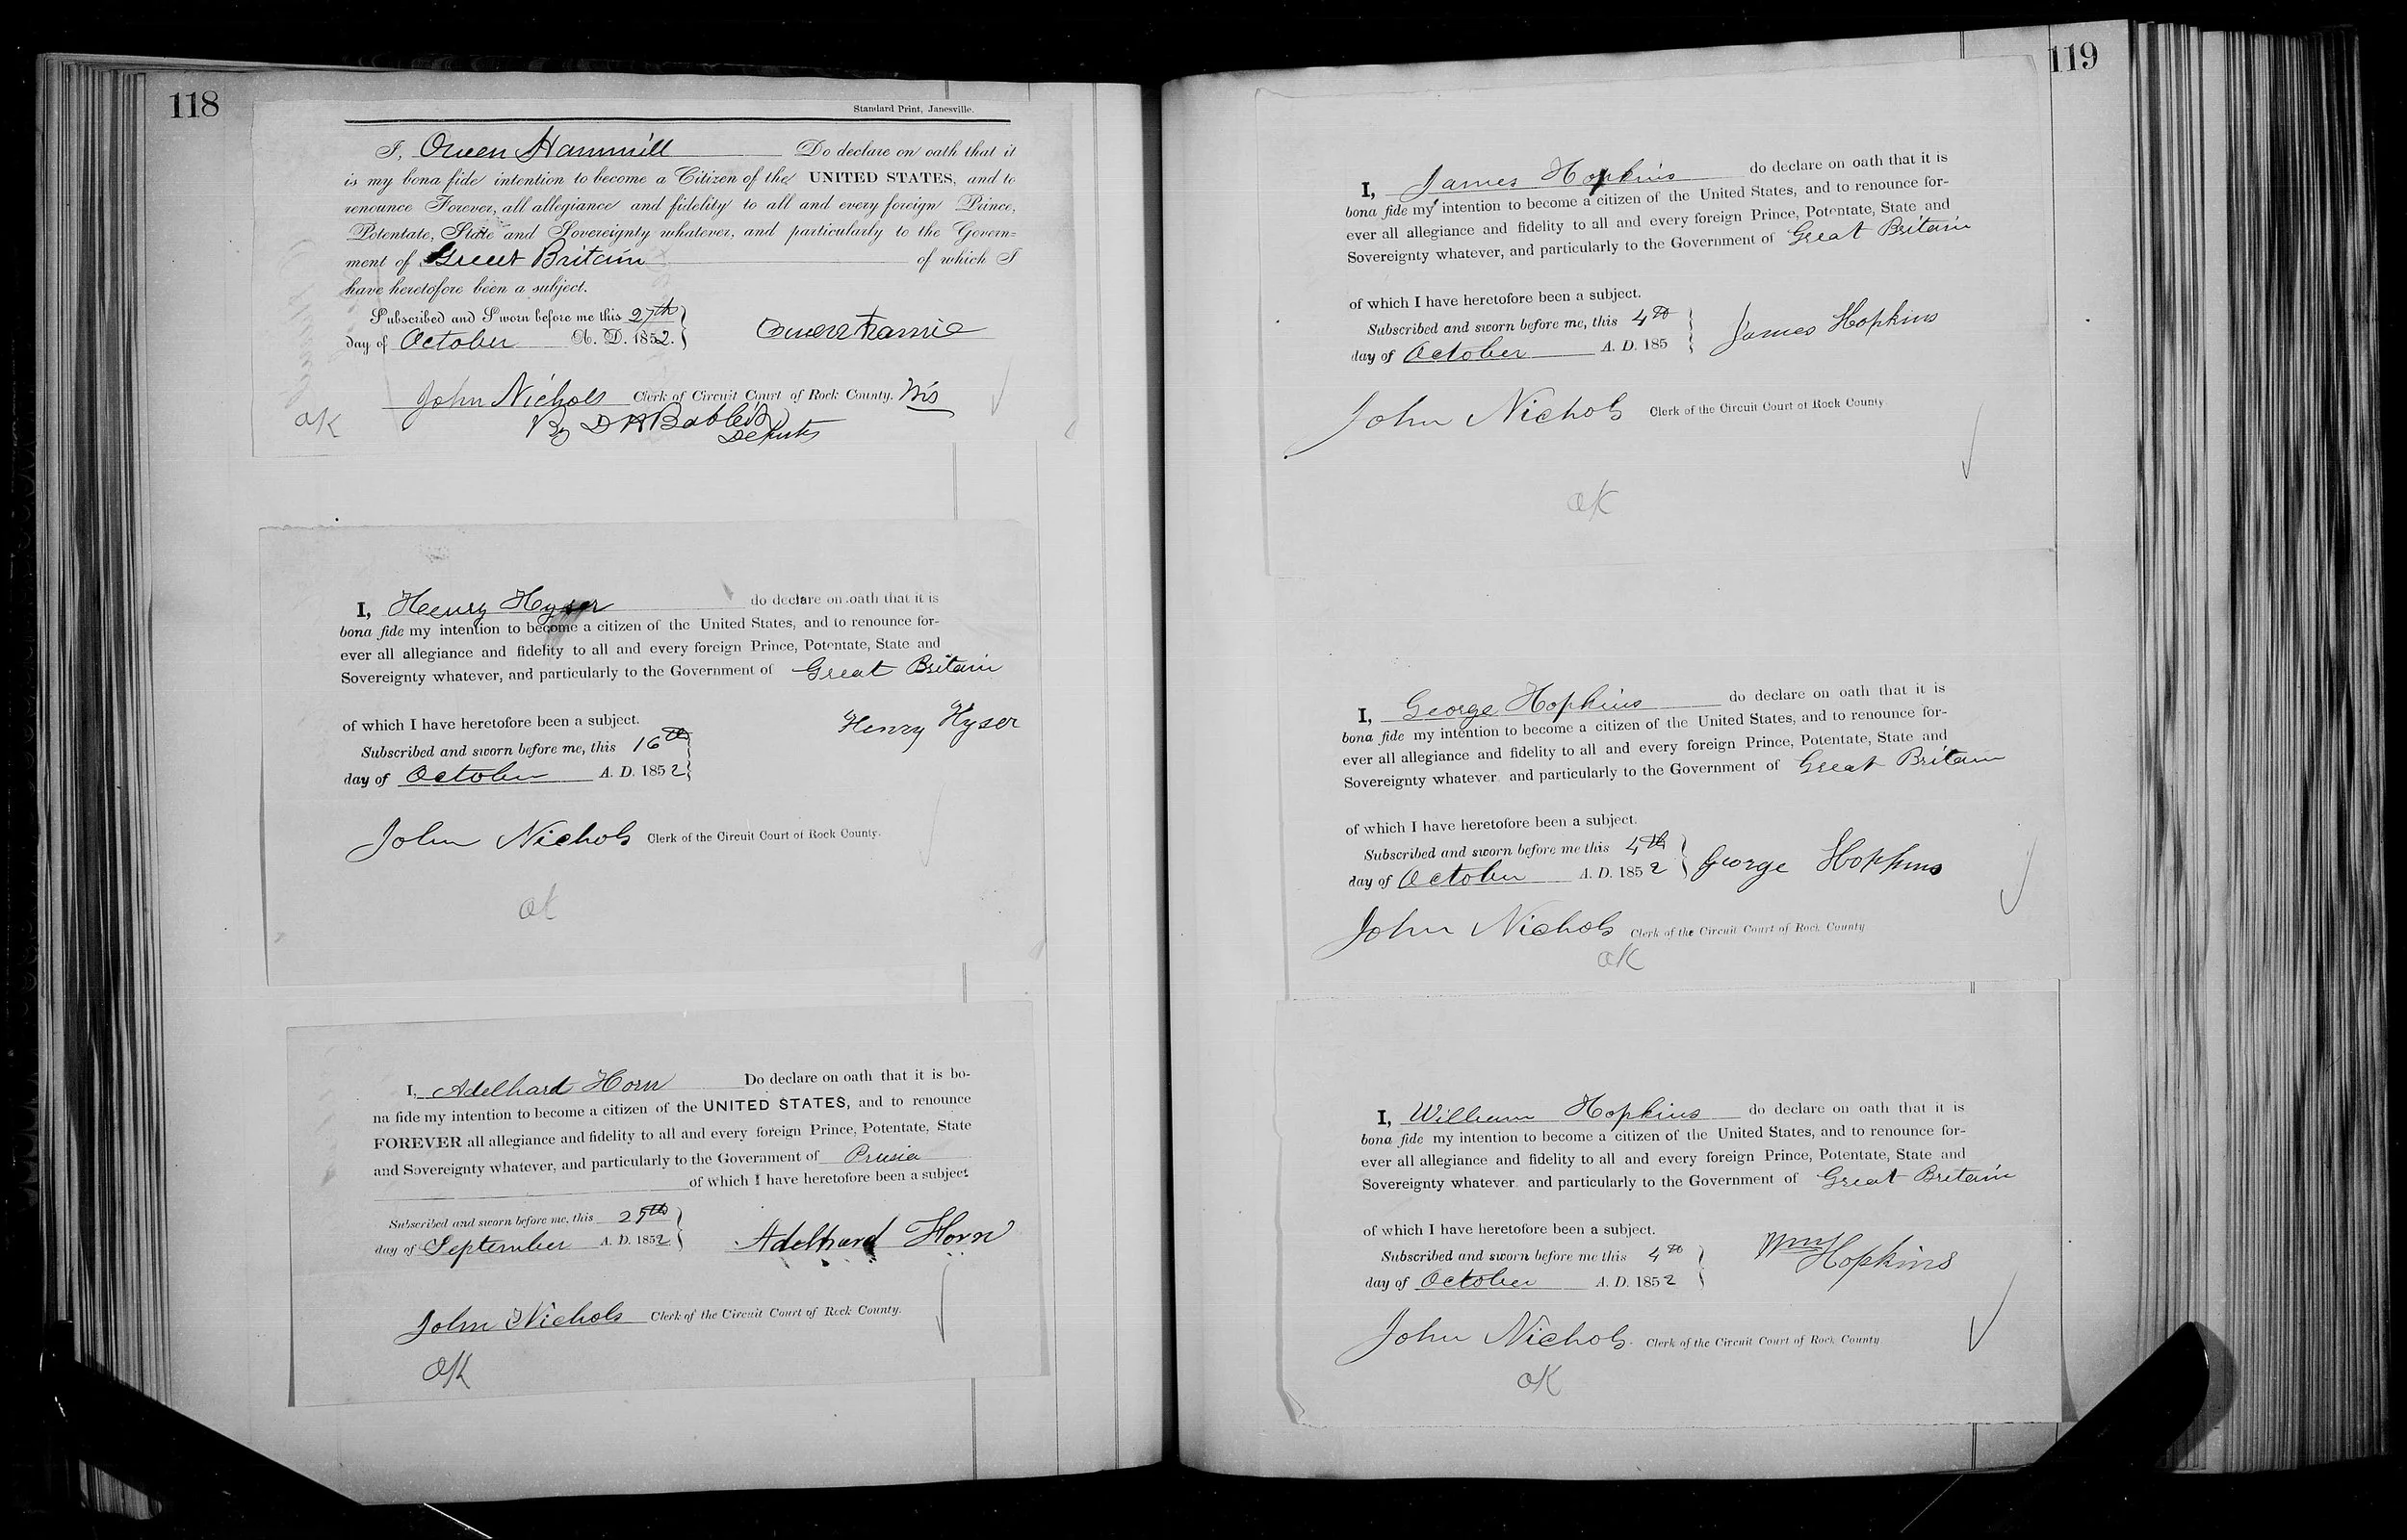 118
Standard Print, Janesville.
I, Owen Hammill Do declare on oath that it
is my bona fide intention to become a Citizen of the UNITED STATES, and to
renounce Forever, all allegiance and fidelity to all and every foreign Prince,
Potentate, State and Sovereignty whatever, and particularly to the Govern=
ment of Great Britain of which I
have heretofore been a subject.
Subscribed and Sworn before me this 27th
day of October A. D. 1852.
John Nichols Clerk of Circuit Court of Rock County. Wis
By D
Deputy
OK
I, Henry Hyser do declare on oath that it is
bona fide my intention to become a citizen of the United States, and to renounce for-
ever all allegiance and fidelity to all and every foreign Prince, Potentate, State and
Sovereignty whatever, and particularly to the Government of Great Britain
of which I have heretofore been a subject.
Henry Hyser
Subscribed and sworn before me, this 16th
day of October A. D. 1852
John Nichols Clerk of the Circuit Court of Rock County.
OK
I, Adelhard Horn Do declare on oath that it is bo-
na fide my intention to become a citizen of the UNITED STATES, and to renounce
FOREVER all allegiance and fidelity to all and every foreign Prince, Potentate, State
and Sovereignty whatever, and particularly to the Government of Prusia
of which I have heretofore been a subject
Subscribed and sworn before me, this
day of September A. D. 1852 Adelhard Horn
John Nichols Clerk of the Circuit Court of Rock County.
OK
119
I, James Hopkins do declare on oath that it is
bona fide my intention to become a citizen of the United States, and to renounce for-
ever all allegiance and fidelity to all and every foreign Prince, Potentate, State and
Sovereignty whatever, and particularly to the Government of Great Britain
of which I have heretofore been a subject.
Subscribed and sworn before me, this 4th
day of October A. D. 185 James Hopkins
John Nichols Clerk of the Circuit Court of Rock County
OK
I, George Hopkins do declare on oath that it is
bona fide my intention to become a citizen of the United States, and to renounce for-
ever all allegiance and fidelity to all and every foreign Prince, Potentate, State and
Sovereignty whatever and particularly to the Government of Great Britain
of which I have heretofore been a subject.
Subscribed and sworn before me this 4th
day of October A. D. 1852 George Hopkins
John Nichols Clerk of the Circuit Court of Rock County
OK
I, William Hopkins do declare on oath that it is
bona fide my intention to become a citizen of the United States, and to renounce for-
ever all allegiance and fidelity to all and every foreign Prince, Potentate, State and
Sovereignty whatever and particularly to the Government of Great Britain
of which I have heretofore been a subject.
Subscribed and sworn before me this 4th Wm Hopkins
day of October A. D. 1852
John Nichols Clerk of the Circuit Court of Rock County
OK